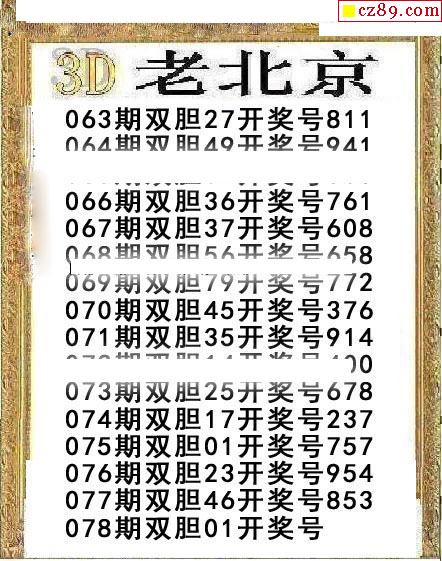 cz89.com
3D 老北京
063期双胆27开奖号811
064期双胆49开奖号941
066期双胆36开奖号761
067期双胆37开奖号608
068期双胆56开奖号658
069期双胆79开奖号772
070期双胆45开奖号376
071期双胆35开奖号914
073期双胆25开奖号678
074期双胆17开奖号237
075期双胆01开奖号757
076期双胆23开奖号954
077期双胆46开奖号853
078期双胆01开奖号